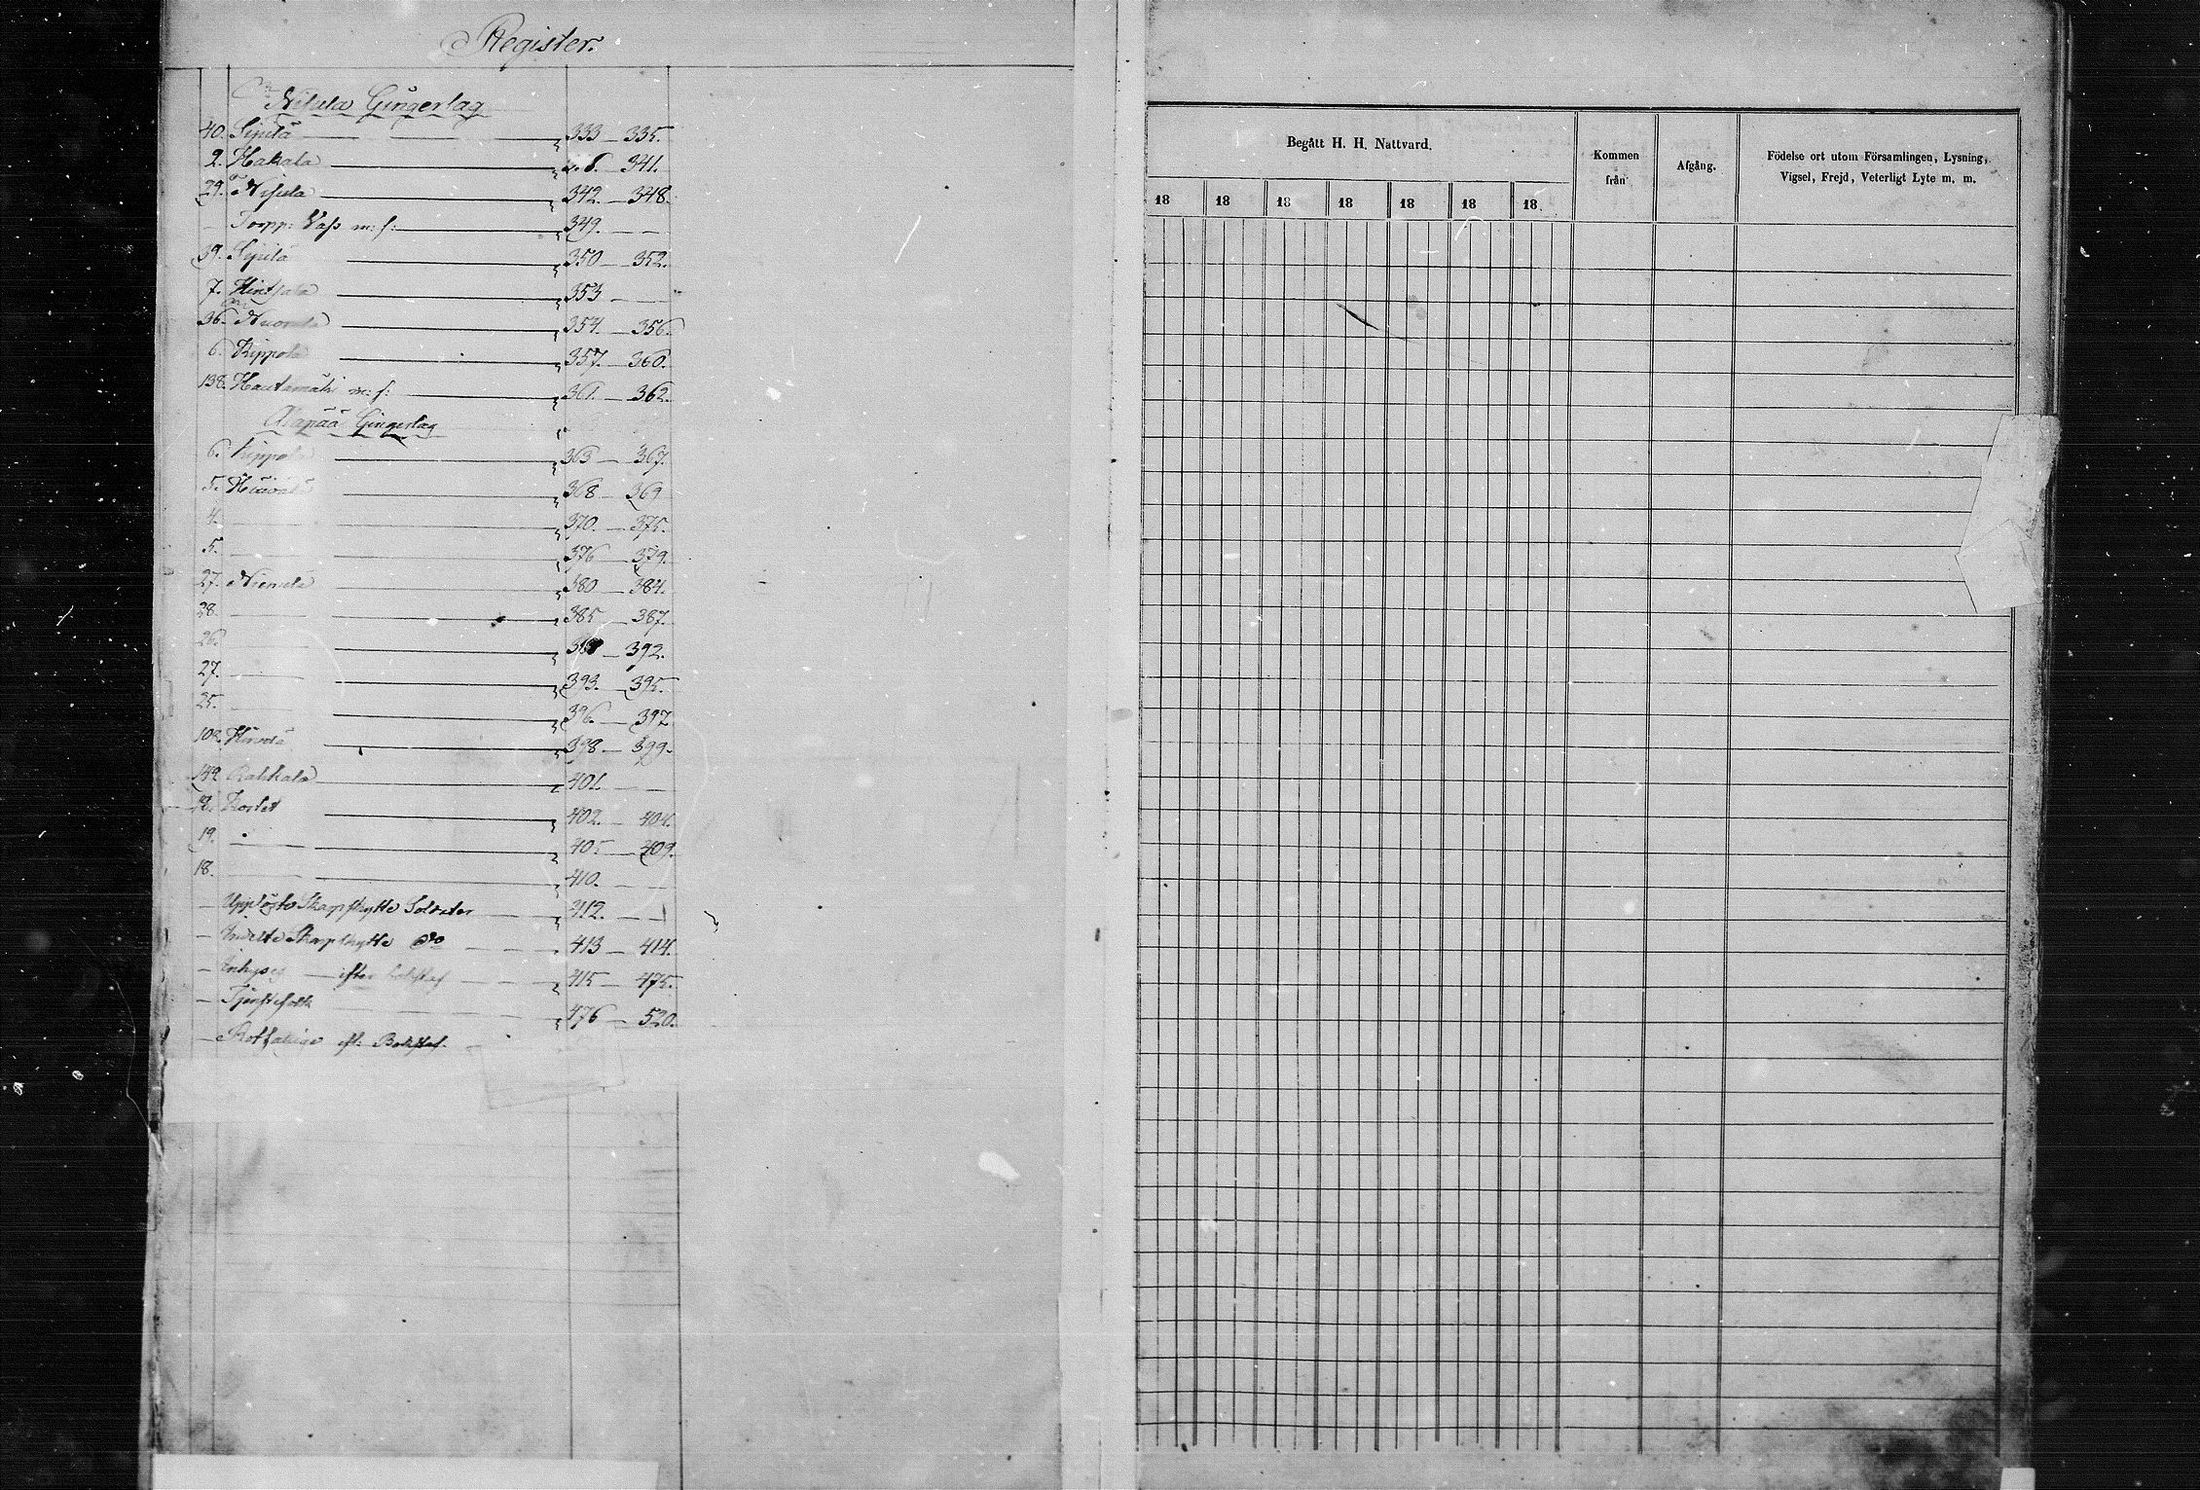 Register.
Nisula Gingerlag
40. Sipilä 333 — 335.
2. Hakala 341.
29. Nisula 342. — 348.
Torpp: Vass m: f: 349. — —
39. Sipilä 350 — 352.
7. Hintsala 353 — —
36. Nuorala 354. — 356.
6. Kippola 357. — 360.
138. Hautamäki m: f: 361. — 362.
Alapää Gingerlag
6. Kippola 363 — 367.
5. 368 — 369
4. — 370. — 375.
5. — 376 — 379.
27. Niemelä 380 — 384.
28. — 385 — 387.
26. — 392.
27. — 393. — 395.
25. — 396. — 397.
108. 398 — 399.
149. Rahkala 401. — —
18. 402. — 404.
19. — 405 — 409.
18. — 410. — —
— Upplöste Skarpskytte Soldater 412. — —
— Indelte Skarpskytte do 413 — 414.
— Inhyses — efter bokstaf 415 — 475.
— Tjenstefolk 476 — 520.
— eft. Bokstaf. —
Begått H. H. Nattvard.
Kommen från
Afgång.
Födelse ort utom Församlingen, Lysning,
Vigsel, Frejd, Veterligt Lyte m. m.
18 18 18 18 18 18 18